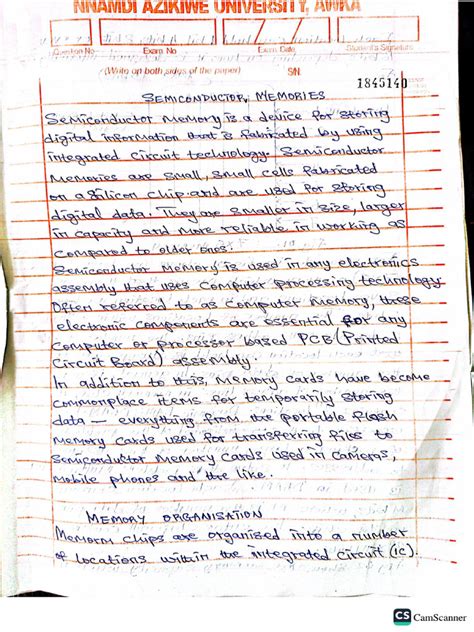 NNAMDI AZIKIWE UNIVERSITY, AWKA
Question No Exam No Exam Date Student's Signature
(Write on both sides of the paper) S/N
1845140
SEMICONDUCTOR MEMORIES
Semiconductor Memory is a device for storing
digital information that is fabricated by using
integrated circuit technology. Semiconductor
Memories are small, small cells fabricated
on a silicon chip and are used for storing
digital data. They are smaller in size, larger
in capacity and more reliable in working as
compared to older ones.
Semiconductor Memory is used in any electronics
assembly that uses computer processing technology.
Often referred to as computer memory, these
electronic components are essential for any
computer or processor based PCB (Printed
Circuit Board) assembly.
In addition to this, memory cards have become
commonplace items for temporarily storing
data — everything from the portable flash
memory cards used for transferring files to
semiconductor memory cards used in cameras,
mobile phones and the like.
MEMORY ORGANISATION
Memory chips are organised into a number
of locations within the integrated circuit (ic).
CS CamScanner